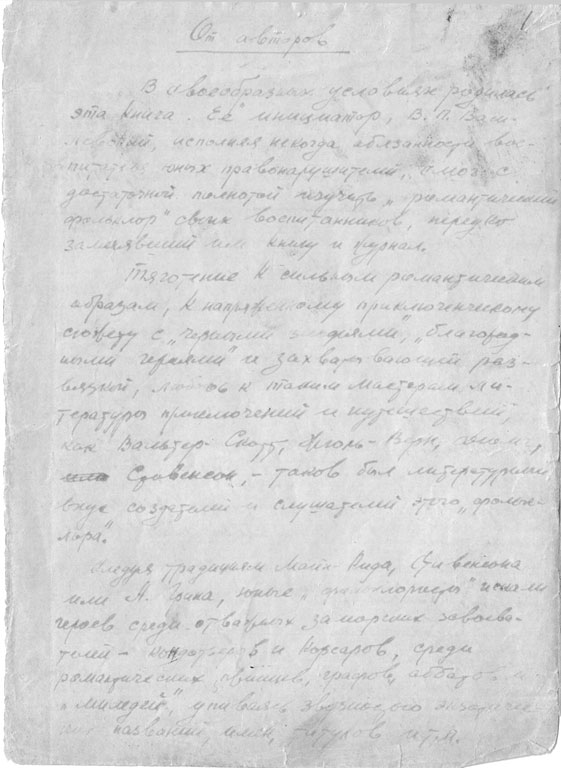 1
От авторов
В своеобразных условиях родилась
эта книга. Её инициатор, В. П. Васи-
левский, исполняя некогда обязанности вос-
питателя юных правонарушителей, смог с
достаточной полнотой изучить „романтический
фольклор" своих воспитанников, нередко
заменявший им книгу и журнал.
Тяготение к сильным романтическим
образам, к напряженному приключенческому
сюжету с „черными злодеями", „благород-
ными героями" и захватывающей раз-
вязкой, любовь к таким мастерам ли-
тературы приключений и путешествий,
как Вальтер-Скотт, Жюль-Верн,
Стивенсон, – таков был литературный
вкус создателей и слушателей этого „фольк-
лора".
Следуя традициям Майн-Рида, Стивенсона
или А. Грина, юные „фольклористы" искали
героев среди отважных заморских завоева-
телей – кондотьеров и корсаров, среди
романтических графов, аббатов и
„миледей", упиваясь звучностью экзотиче-
ских названий, имен, титулов и т.п.